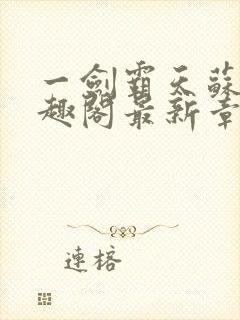 一劍霸天蘇
趣閣最新章
連榕